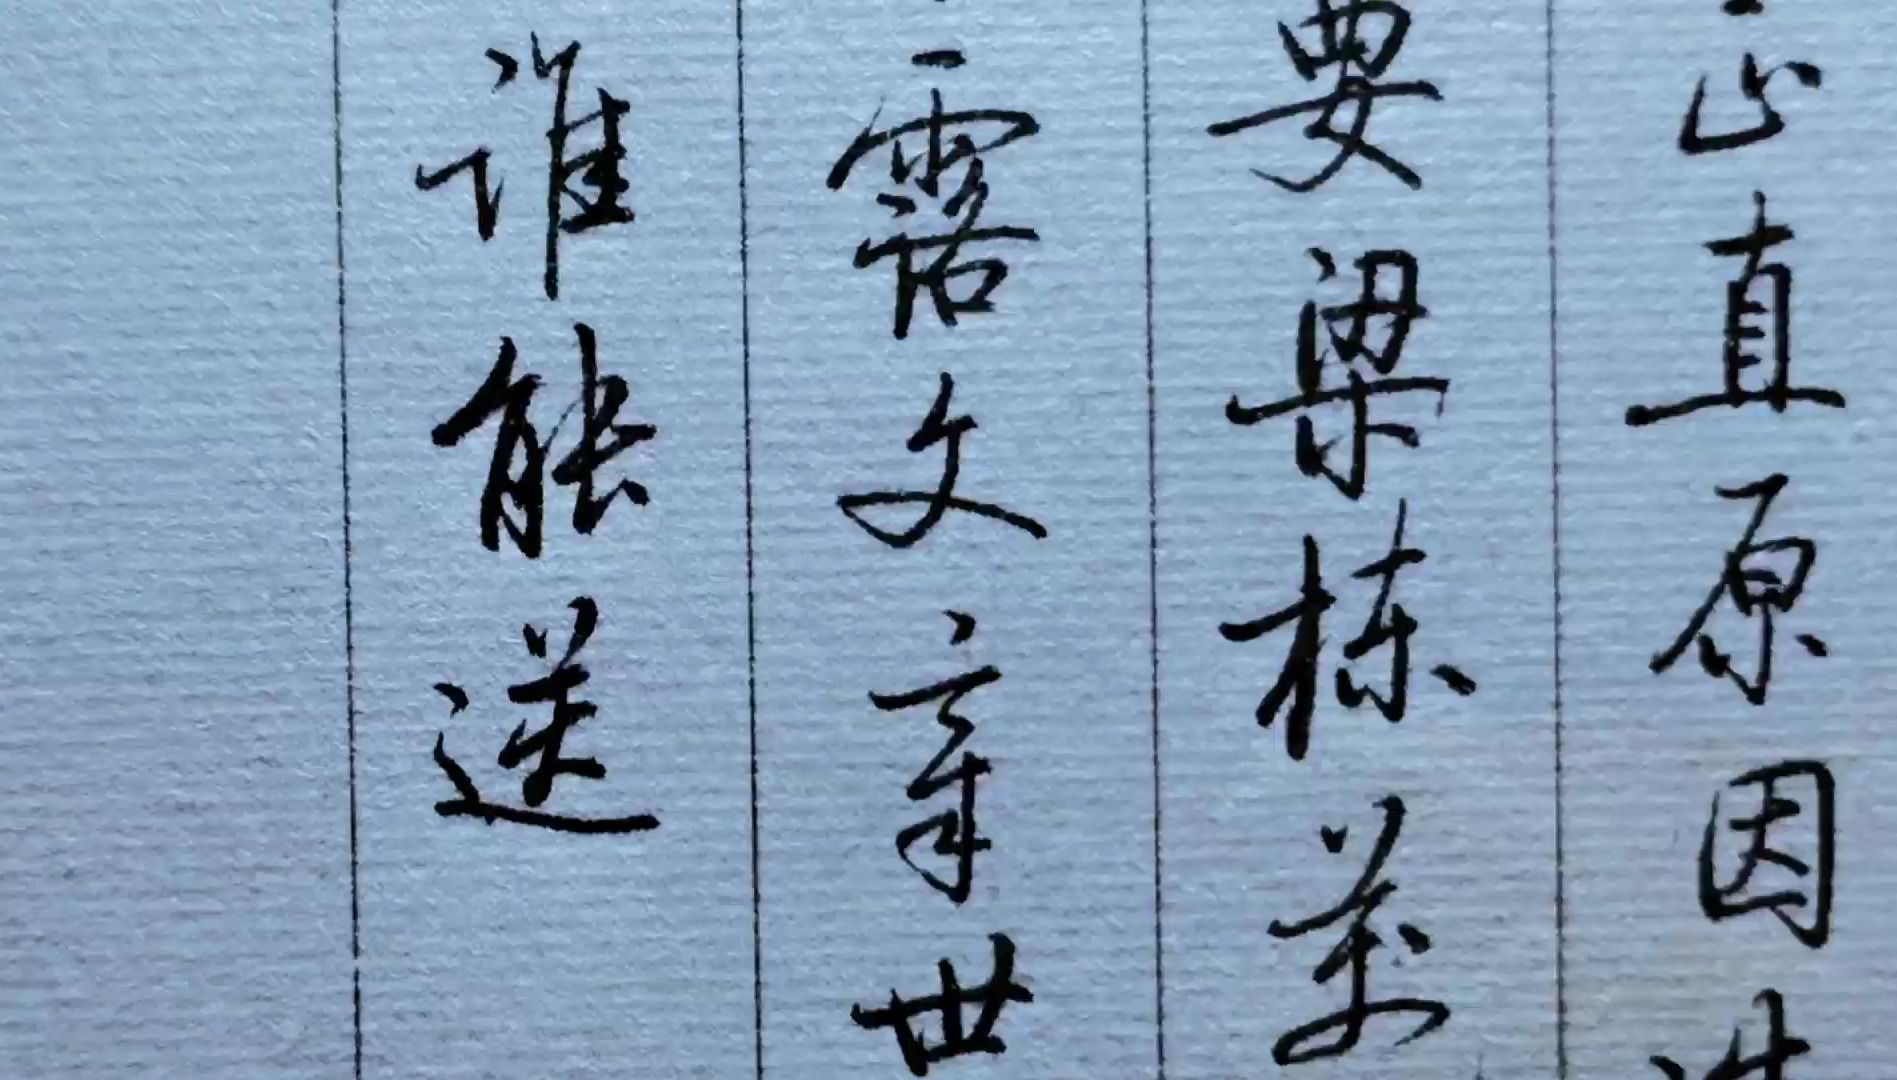 正直原因
要梁栋萬
露文章世
谁能送